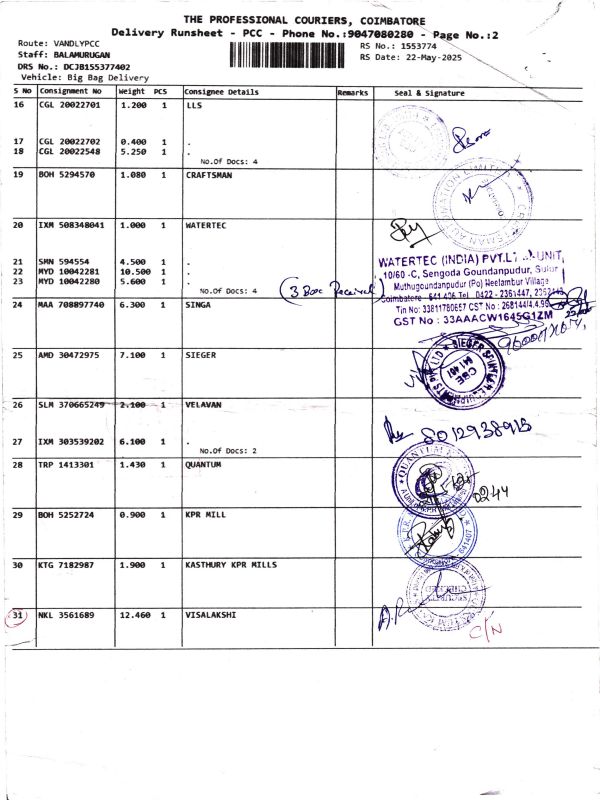 THE PROFESSIONAL COURIERS, COIMBATORE
Delivery Runsheet - PCC - Phone No.:9047080280 - Page No.:2
Route: VANDLYPCC
Staff: BALAMURUGAN
DRS No.: DCJB155377402
Vehicle: Big Bag Delivery
RS No.: 1553774
RS Date: 22-May-2025
S No Consignment No Weight PCS Consignee Details Remarks Seal & Signature
16 CGL 20022701 1.200 1 LLS
17 CGL 20022702 0.400 1 .
18 CGL 20022548 5.250 1 .
No.Of Docs: 4
19 BOH 5294570 1.080 1 CRAFTSMAN
20 IXM 508348041 1.000 1 WATERTEC
21 SMN 594554 4.500 1 .
22 MYD 10042281 10.500 1 .
23 MYD 10042280 5.600 1 .
No.Of Docs: 4
(3 Box Received)
WATERTEC (INDIA) PVT.L UNIT
10/60 -C, Sengoda Goundanpudur, Sulur
Muthugoundanpudur (Po) Neelambur Village
Coimbatore 641 406 Tel 0422 - 2361447,
Tin No: 33811780657 CST No : 268144/4.4.99
GST No : 33AAACW1645G1ZM
24 MAA 708897740 6.300 1 SINGA
25 AMD 30472975 7.100 1 SIEGER
CBE
641 401
26 SLM 370665249 2.100 1 VELAVAN
27 IXM 303539202 6.100 1 .
No.Of Docs: 2
8012938915
28 TRP 1413301 1.430 1 QUANTUM
QUANTUM
0244
29 BOH 5252724 0.900 1 KPR MILL
641407
30 KTG 7182987 1.900 1 KASTHURY KPR MILLS
SECURITY
CHECKED
31 NKL 3561689 12.460 1 VISALAKSHI
C/N